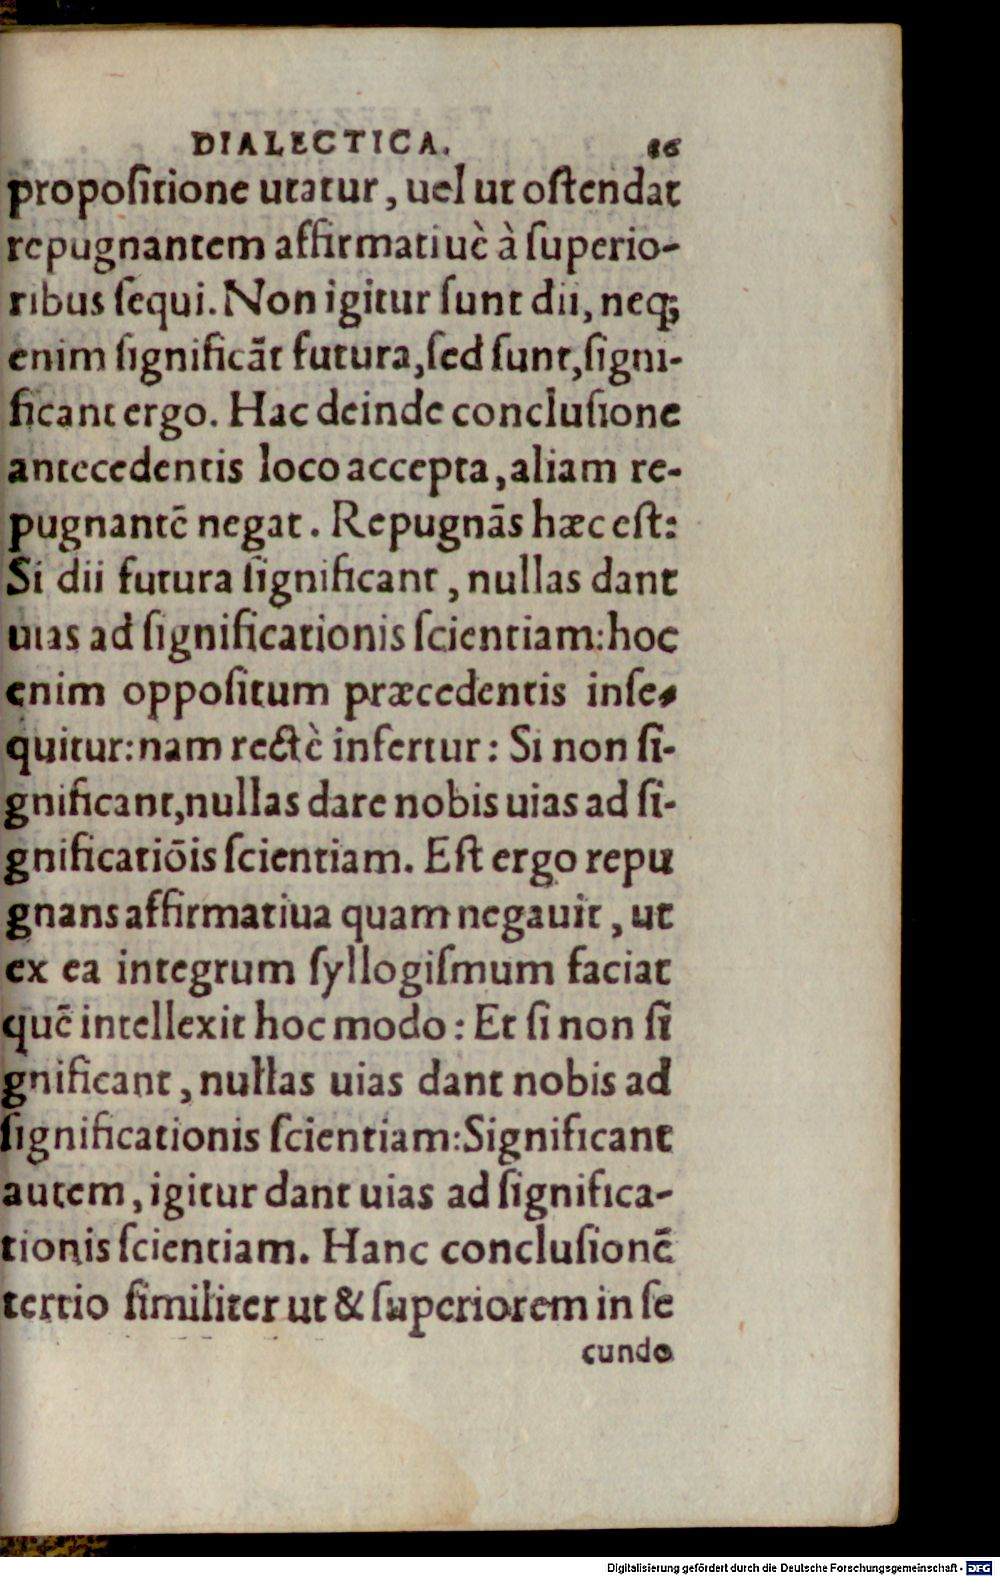 DIALECTICA. 86
propoſitione utatur, uel ut oſtendat
repugnantem affirmatiuè à ſuperio-
ribus ſequi. Non igitur ſunt dii, neq;
enim ſignificãt futura, ſed ſunt, ſigni-
ficant ergo. Hac deinde concluſione
antecedentis loco accepta, aliam re-
pugnantẽ negat. Repugnãs hæc eſt:
Si dii futura ſignificant, nullas dant
uias ad ſignificationis ſcientiam: hoc
enim oppoſitum præcedentis inſe-
quitur: nam rectè infertur: Si non ſi-
gnificant, nullas dare nobis uias ad ſi-
gnificatiõis ſcientiam. Eſt ergo repu
gnans affirmatiua quam negauit, ut
ex ea integrum ſyllogiſmum faciat
quẽ intellexit hoc modo: Et ſi non ſĩ
gnificant, nullas uias dant nobis ad
ſignificationis ſcientiam: Significant
autem, igitur dant uias ad ſignifica-
tionis ſcientiam. Hanc concluſionẽ
tertio ſimiliter ut & ſuperiorem in ſe
cundo
Digitalisierung gefördert durch die Deutsche Forschungsgemeinschaft - DFG